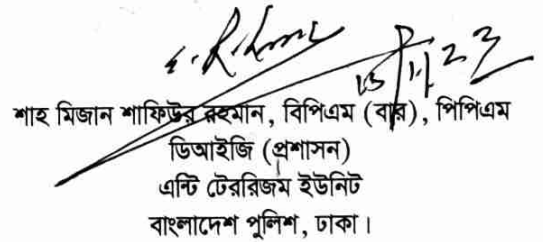 শাহ মিজান শাফিউর রহমান, বিপিএম (বার), পিপিএম
ডিআইজি (প্রশাসন)
এন্টি টেররিজম ইউনিট
বাংলাদেশ পুলিশ, ঢাকা।